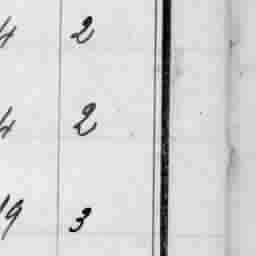 4 2
4 2
19 3